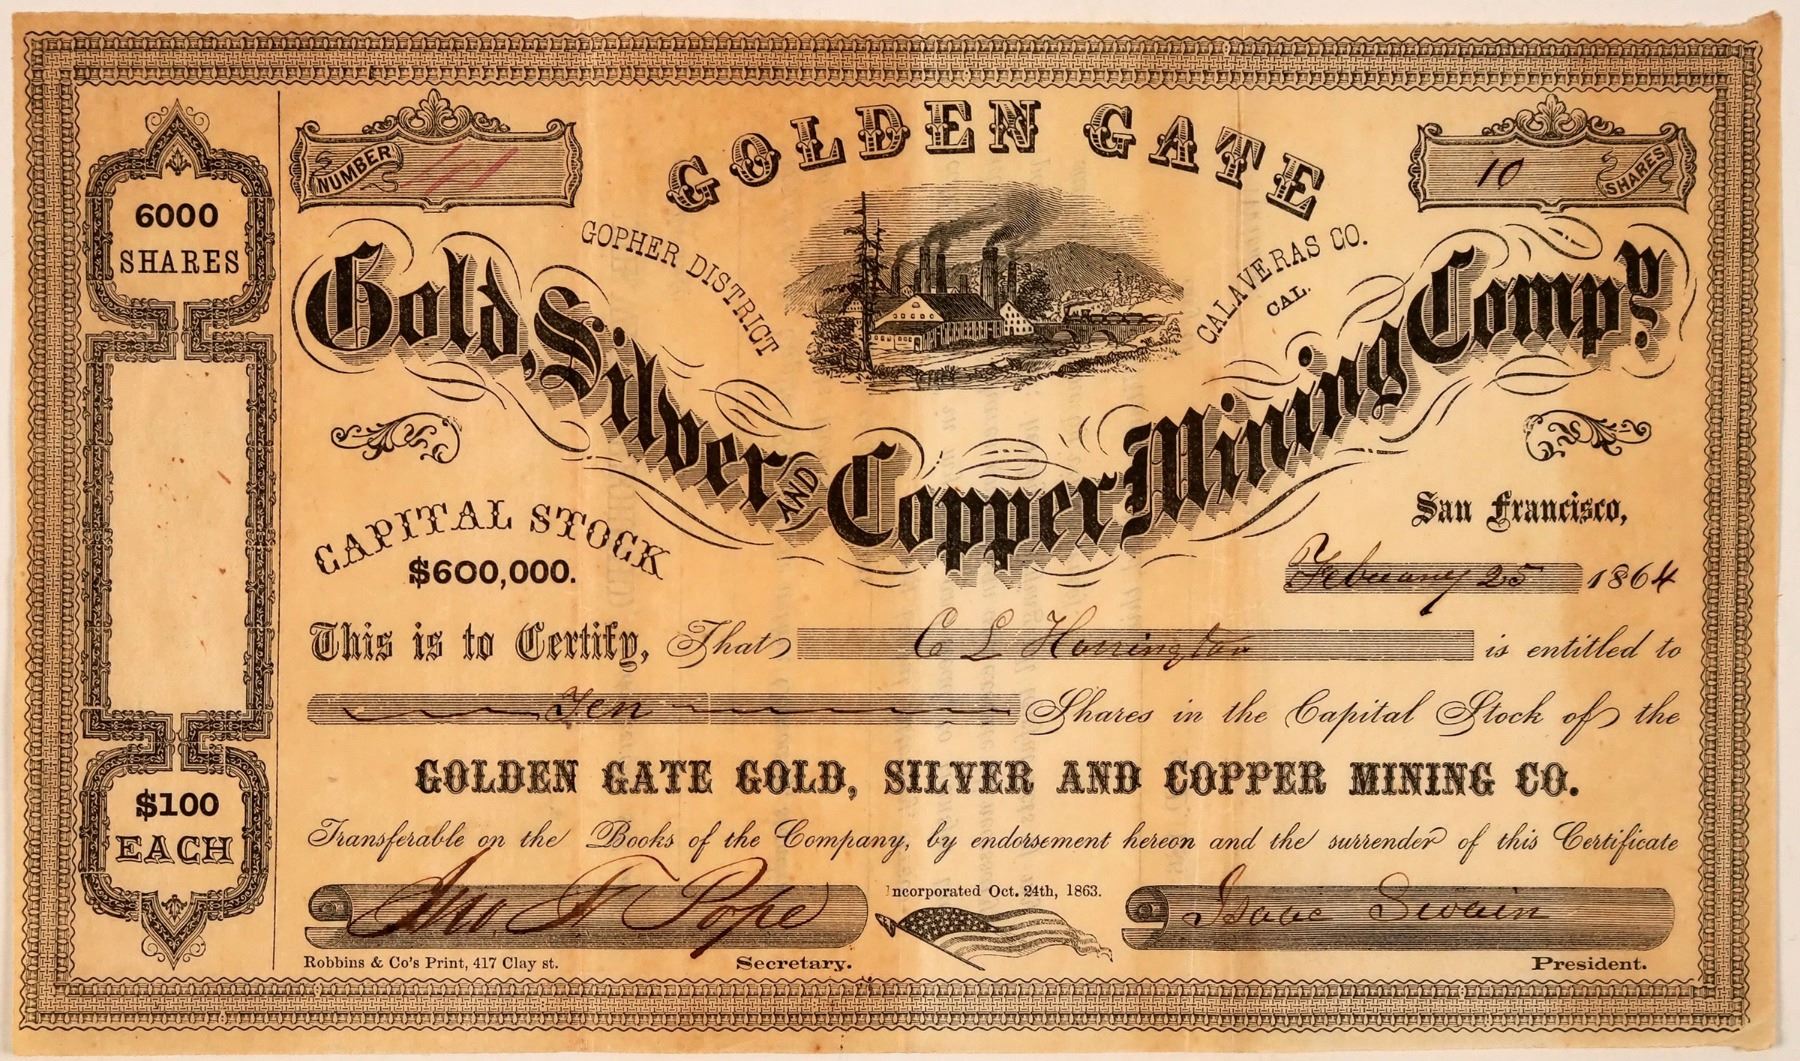 6000
SHARES
$100
EACH
NUMBER
10 SHARES
GOLDEN GATE
GOPHER DISTRICT
CALAVERAS CO.
CAL.
Gold, Silver AND Copper Mining Compy.
CAPITAL STOCK
$600,000.
San Francisco,
February 25 1864
This is to Certify, That C L Harrington is entitled to
Ten Shares in the Capital Stock of the
GOLDEN GATE GOLD, SILVER AND COPPER MINING CO.
Transferable on the Books of the Company, by endorsement hereon and the surrender of this Certificate
Jno. F. Pope
Incorporated Oct. 24th, 1863.
Isaac Swain
Robbins & Co's Print, 417 Clay st.
Secretary.
President.